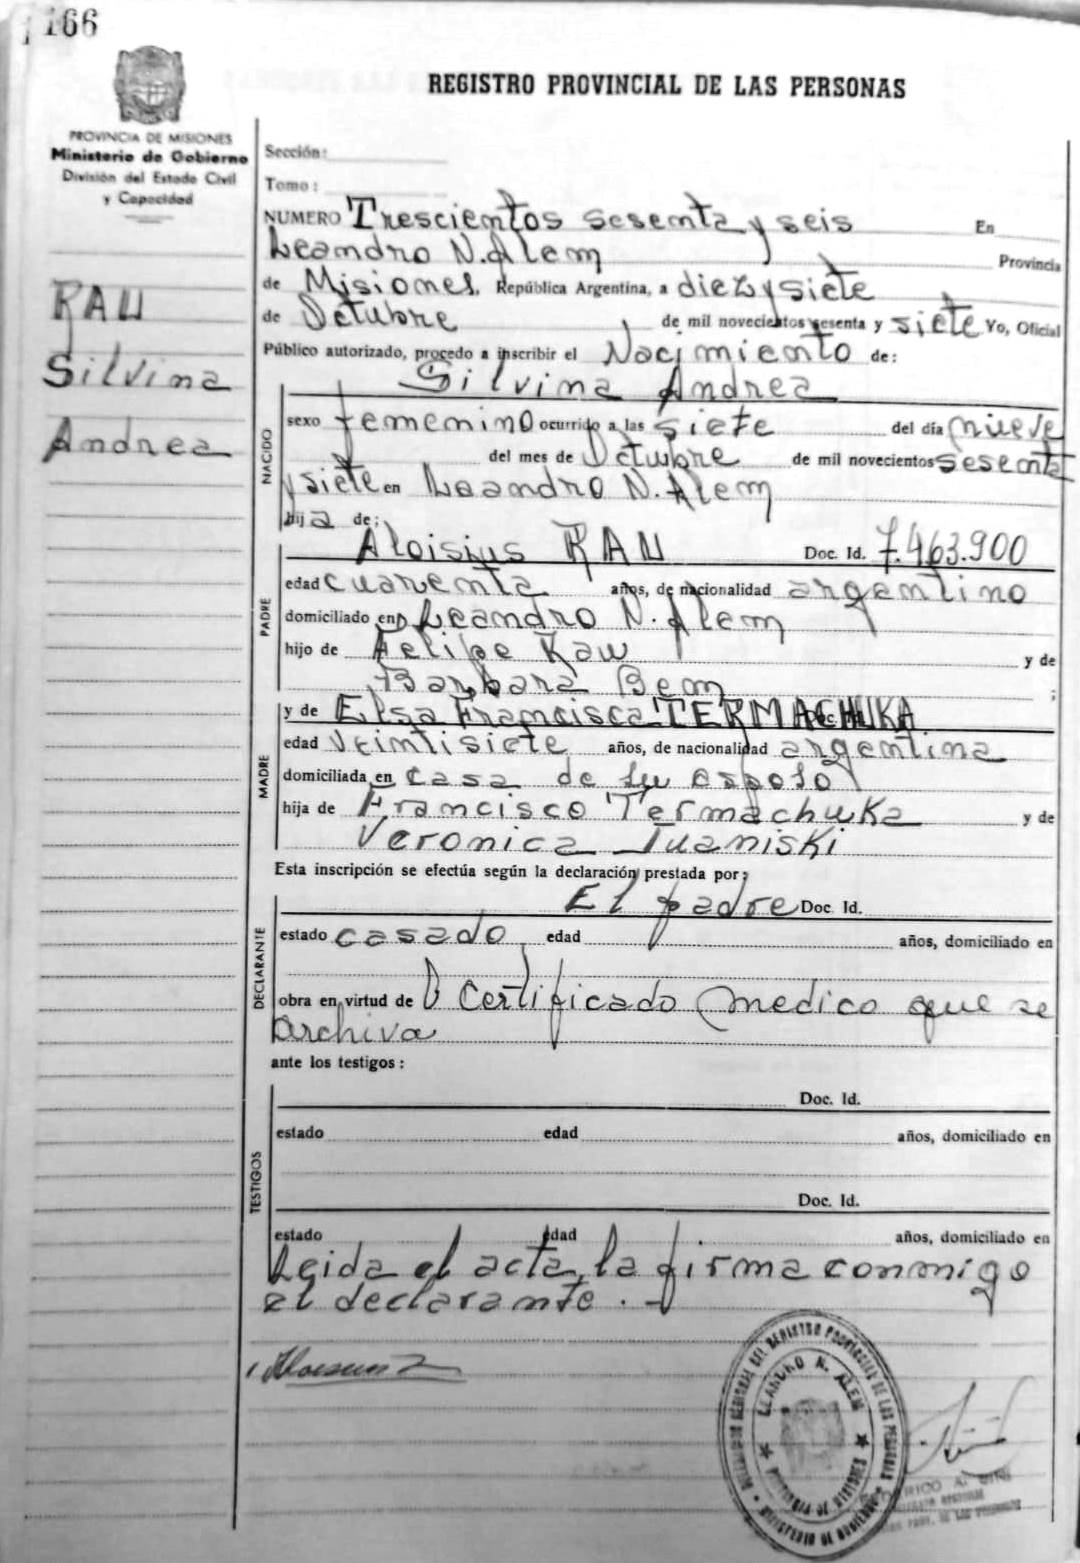 166
REGISTRO PROVINCIAL DE LAS PERSONAS
PROVINCIA DE MISIONES
Ministerio de Gobierno
División del Estado Civil
y Capacidad
RAU
Silvina
Andrea
Sección:
Tomo:
NUMERO Trescientos sesenta y seis En
Leandro N. Alem Provincia
de Misiones, República Argentina, a diez y siete
de Octubre de mil novecientos sesenta y siete Yo, Oficial
Público autorizado, procedo a inscribir el Nacimiento de:
Silvina Andrea
NACIDO
sexo femenino ocurrido a las siete del día nueve
del mes de Octubre de mil novecientos sesenta
y siete en Leandro N. Alem
hija de:
PADRE
Aloisius RAU Doc. Id. 7.463.900
edad cuarenta años, de nacionalidad argentino
domiciliado en Leandro N. Alem
hijo de Felipe Rau y de
Barbara Bem ;
MADRE
y de Elsa Francisca TERMACHUKA Doc. Id.
edad veintisiete años, de nacionalidad argentina
domiciliada en casa de su esposo
hija de Francisco Termachuka y de
Veronica Iuaniski
Esta inscripción se efectúa según la declaración prestada por:
DECLARANTE
El padre Doc. Id.
estado casado edad años, domiciliado en
obra en virtud de Certificado medico que se
archiva
ante los testigos:
TESTIGOS
Doc. Id.
estado edad años, domiciliado en
Doc. Id.
estado edad años, domiciliado en
Leida el acta, la firma conmigo
el declarante.
DEL REGISTRO PROVINCIAL DE LAS PERSONAS
LEANDRO N. ALEM
PROVINCIA DE MISIONES
MINISTERIO DE GOBIERNO